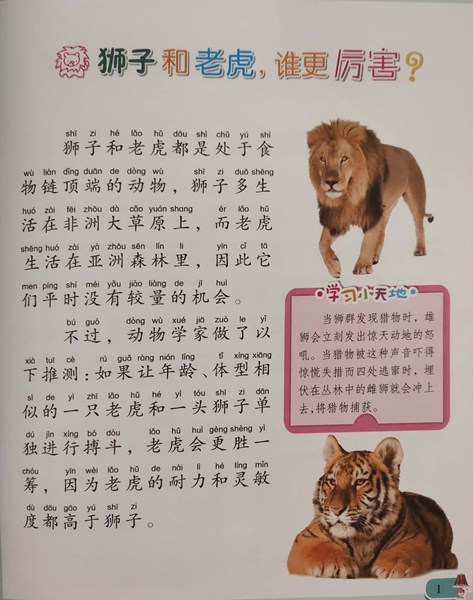 狮子和老虎，谁更厉害？
shī zi hé lǎo hǔ dōu shì chǔ yú shí
狮子和老虎都是处于食
wù liàn dǐng duān de dòng wù shī zi duō shēng
物链顶端的动物，狮子多生
huó zài fēi zhōu dà cǎo yuán shang ér lǎo hǔ
活在非洲大草原上，而老虎
shēng huó zài yà zhōu sēn lín li yīn cǐ tā
生活在亚洲森林里，因此它
men píng shí méi yǒu jiào liàng de jī huì
们平时没有较量的机会。
bú guò dòng wù xué jiā zuò le yǐ
不过，动物学家做了以
xià tuī cè rú guǒ ràng nián líng tǐ xíng xiāng
下推测：如果让年龄、体型相
sì de yì zhī lǎo hǔ hé yì tóu shī zi dān
似的一只老虎和一头狮子单
dú jìn xíng bó dòu lǎo hǔ huì gèng shèng yì
独进行搏斗，老虎会更胜一
chóu yīn wèi lǎo hǔ de nài lì hé líng mǐn
筹，因为老虎的耐力和灵敏
dù dōu gāo yú shī zi
度都高于狮子。
学习小天地
当狮群发现猎物时，雄
狮会立刻发出惊天动地的怒
吼。当猎物被这种声音吓得
惊慌失措而四处逃窜时，埋
伏在丛林中的雌狮就会冲上
去，将猎物捕获。
1